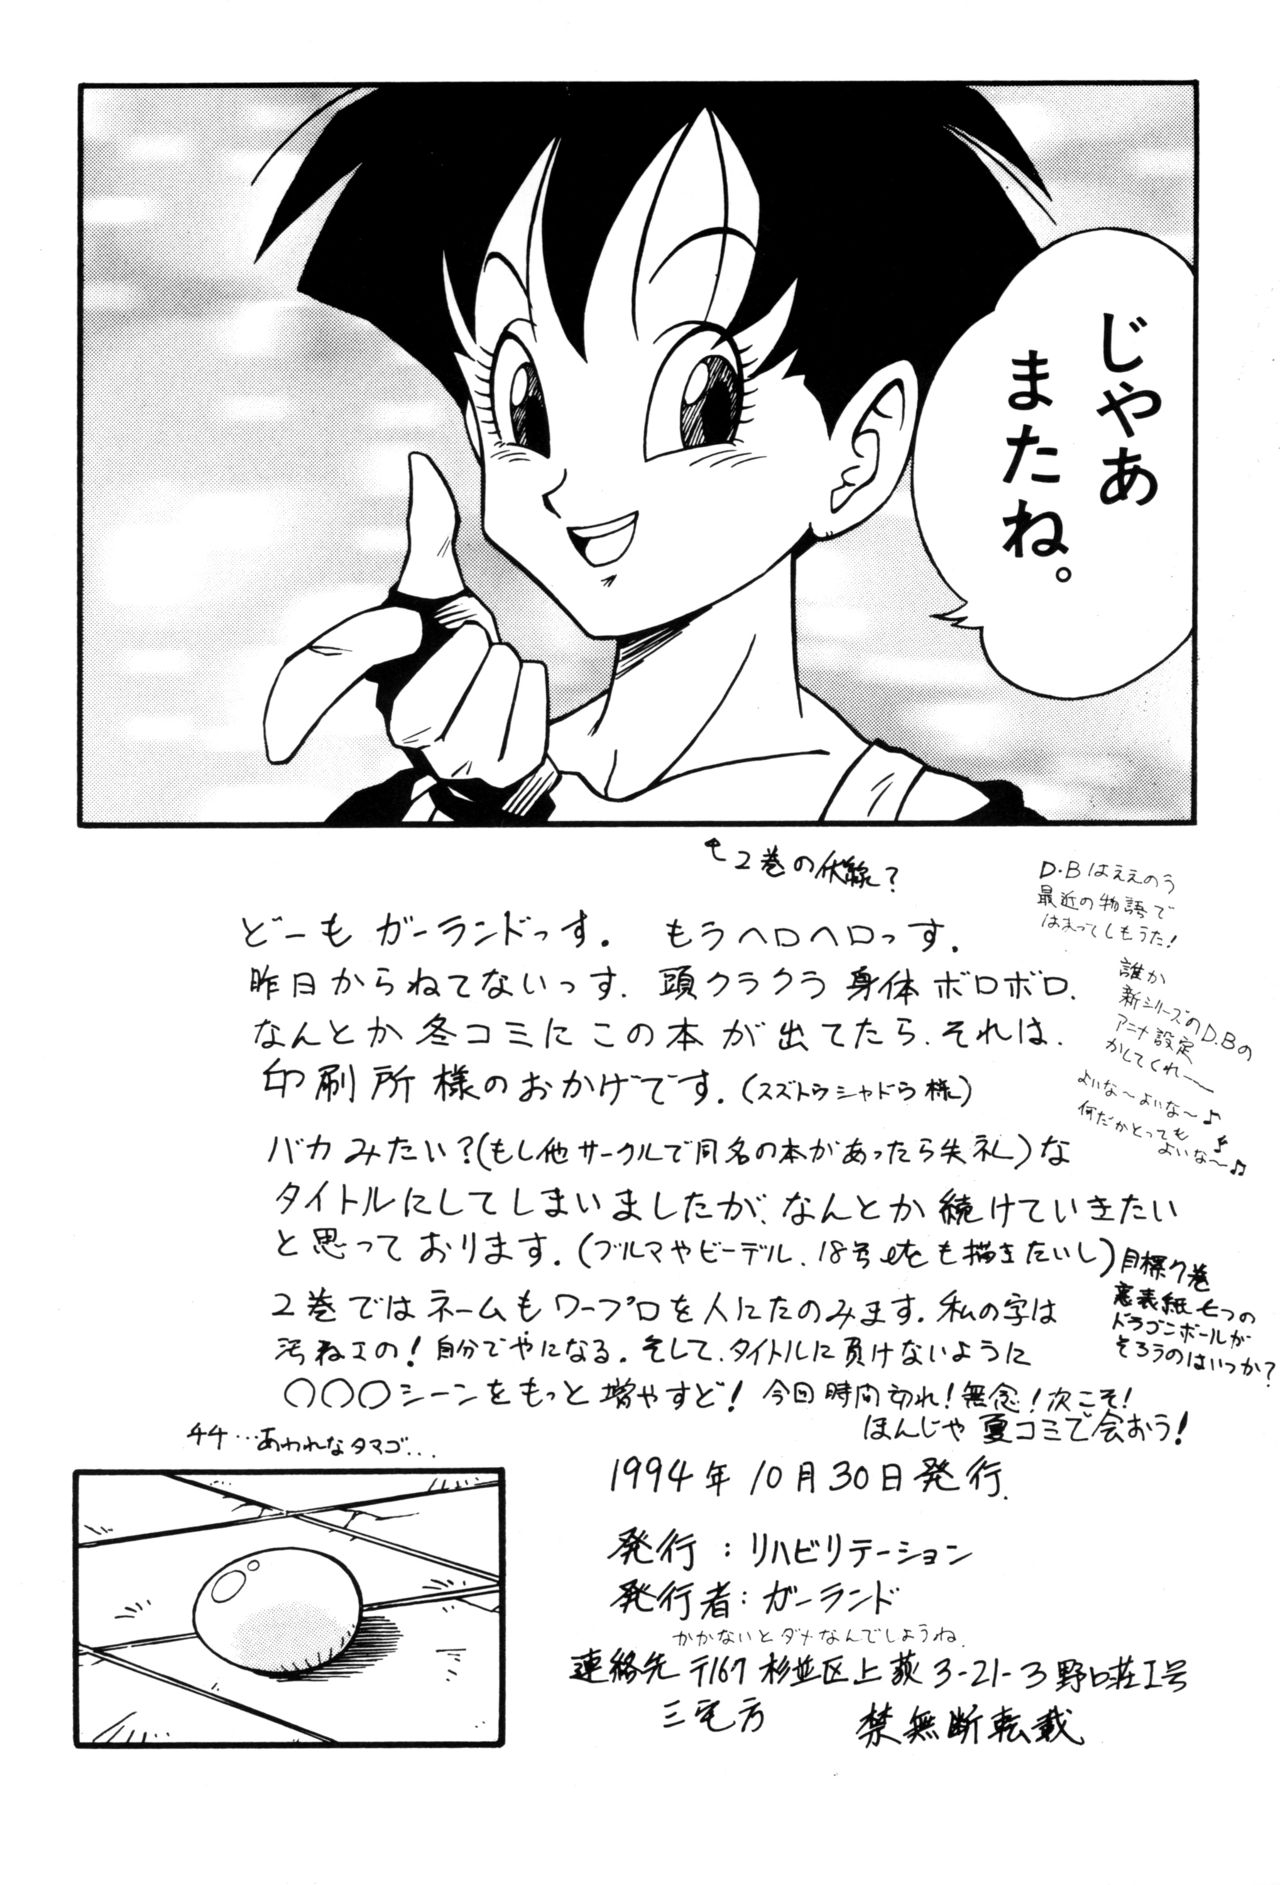 じゃあ
またね。
↑2巻の伏線？
D・Bはええのう
最近の物語で
はまってしもうた！
誰か
新シリーズのD.Bの
アニメ設定
かしてくれ――
よいな～よいな～♪
何だかとっても
よいな～♫
どーも ガーランドっす。 もうヘロヘロっす。
昨日からねてないっす. 頭クラクラ 身体ボロボロ.
なんとか冬コミにこの本が出てたら、それは、
印刷所様のおかげです.(スズトウシャドウ様)
バカみたい？(もし他サークルで同名の本があったら失礼)な
タイトルにしてしまいましたが、なんとか続けていきたい
と思っております.(ブルマやビーデル、18号etcも描きたいし)
目標7巻
裏表紙七つの
ドラゴンボールが
そろうのはいつか？
2巻ではネームもワープロを人にたのみます. 私の字は
汚ねェの！自分でやになる. そして、タイトルに負けないように
〇〇〇シーンをもっと増やすど！ 今回時間切れ！無念！次こそ！
ほんじゃ 夏コミで会おう！
チチ…あわれなタマゴ…
1994年10月30日発行.
発行：リハビリテーション
発行者：ガーランド
かかないとダメなんでしょうね.
連絡先 〒167 杉並区上荻3-21-3野口荘1号
三宅方
禁無断転載